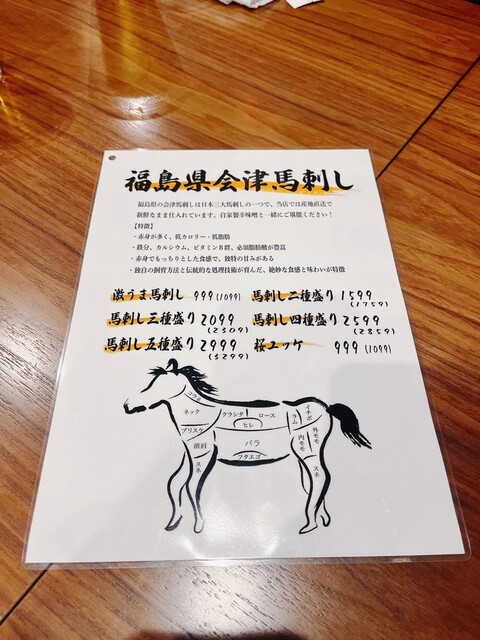 福島県会津馬刺し
福島県の会津馬刺しは日本三大馬刺しの一つで、当店では産地直送で
新鮮なまま仕入れています。自家製辛味噌と一緒にご堪能ください！
【特徴】
・赤身が多く、低カロリー・低脂肪
・鉄分、カルシウム、ビタミンB群、必須脂肪酸が豊富
・赤身でもっちりとした食感で、独特の甘みがある
・独自の飼育方法と伝統的な処理技術が育んだ、絶妙な食感と味わいが特徴
激うま馬刺し 999 (1099) 馬刺し二種盛り 1599 (1759)
馬刺し三種盛り 2099 (2309) 馬刺し四種盛り 2599 (2859)
馬刺し五種盛り 2999 (3299) 桜ユッケ 999 (1099)
コウネ
ネック クラシタ ロース ラム イチボ
ヒレ
ブリスケ 外モモ
前肩 バラ 内モモ
フタエゴ
スネ スネ